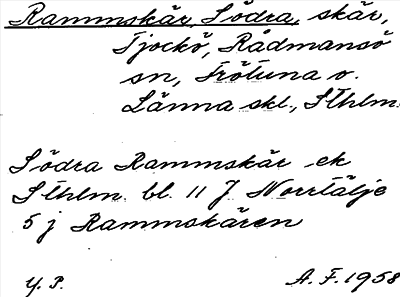 Rammskär, Södra, skär,
Tjockö, Rådmansö
sn, Frötuna o.
Länna skl., Sthlm.
Södra Rammskär -ek
Sthlm. bl. 11 J Norrtälje
5 j Rammskären
Y. P.
A. F. 1958